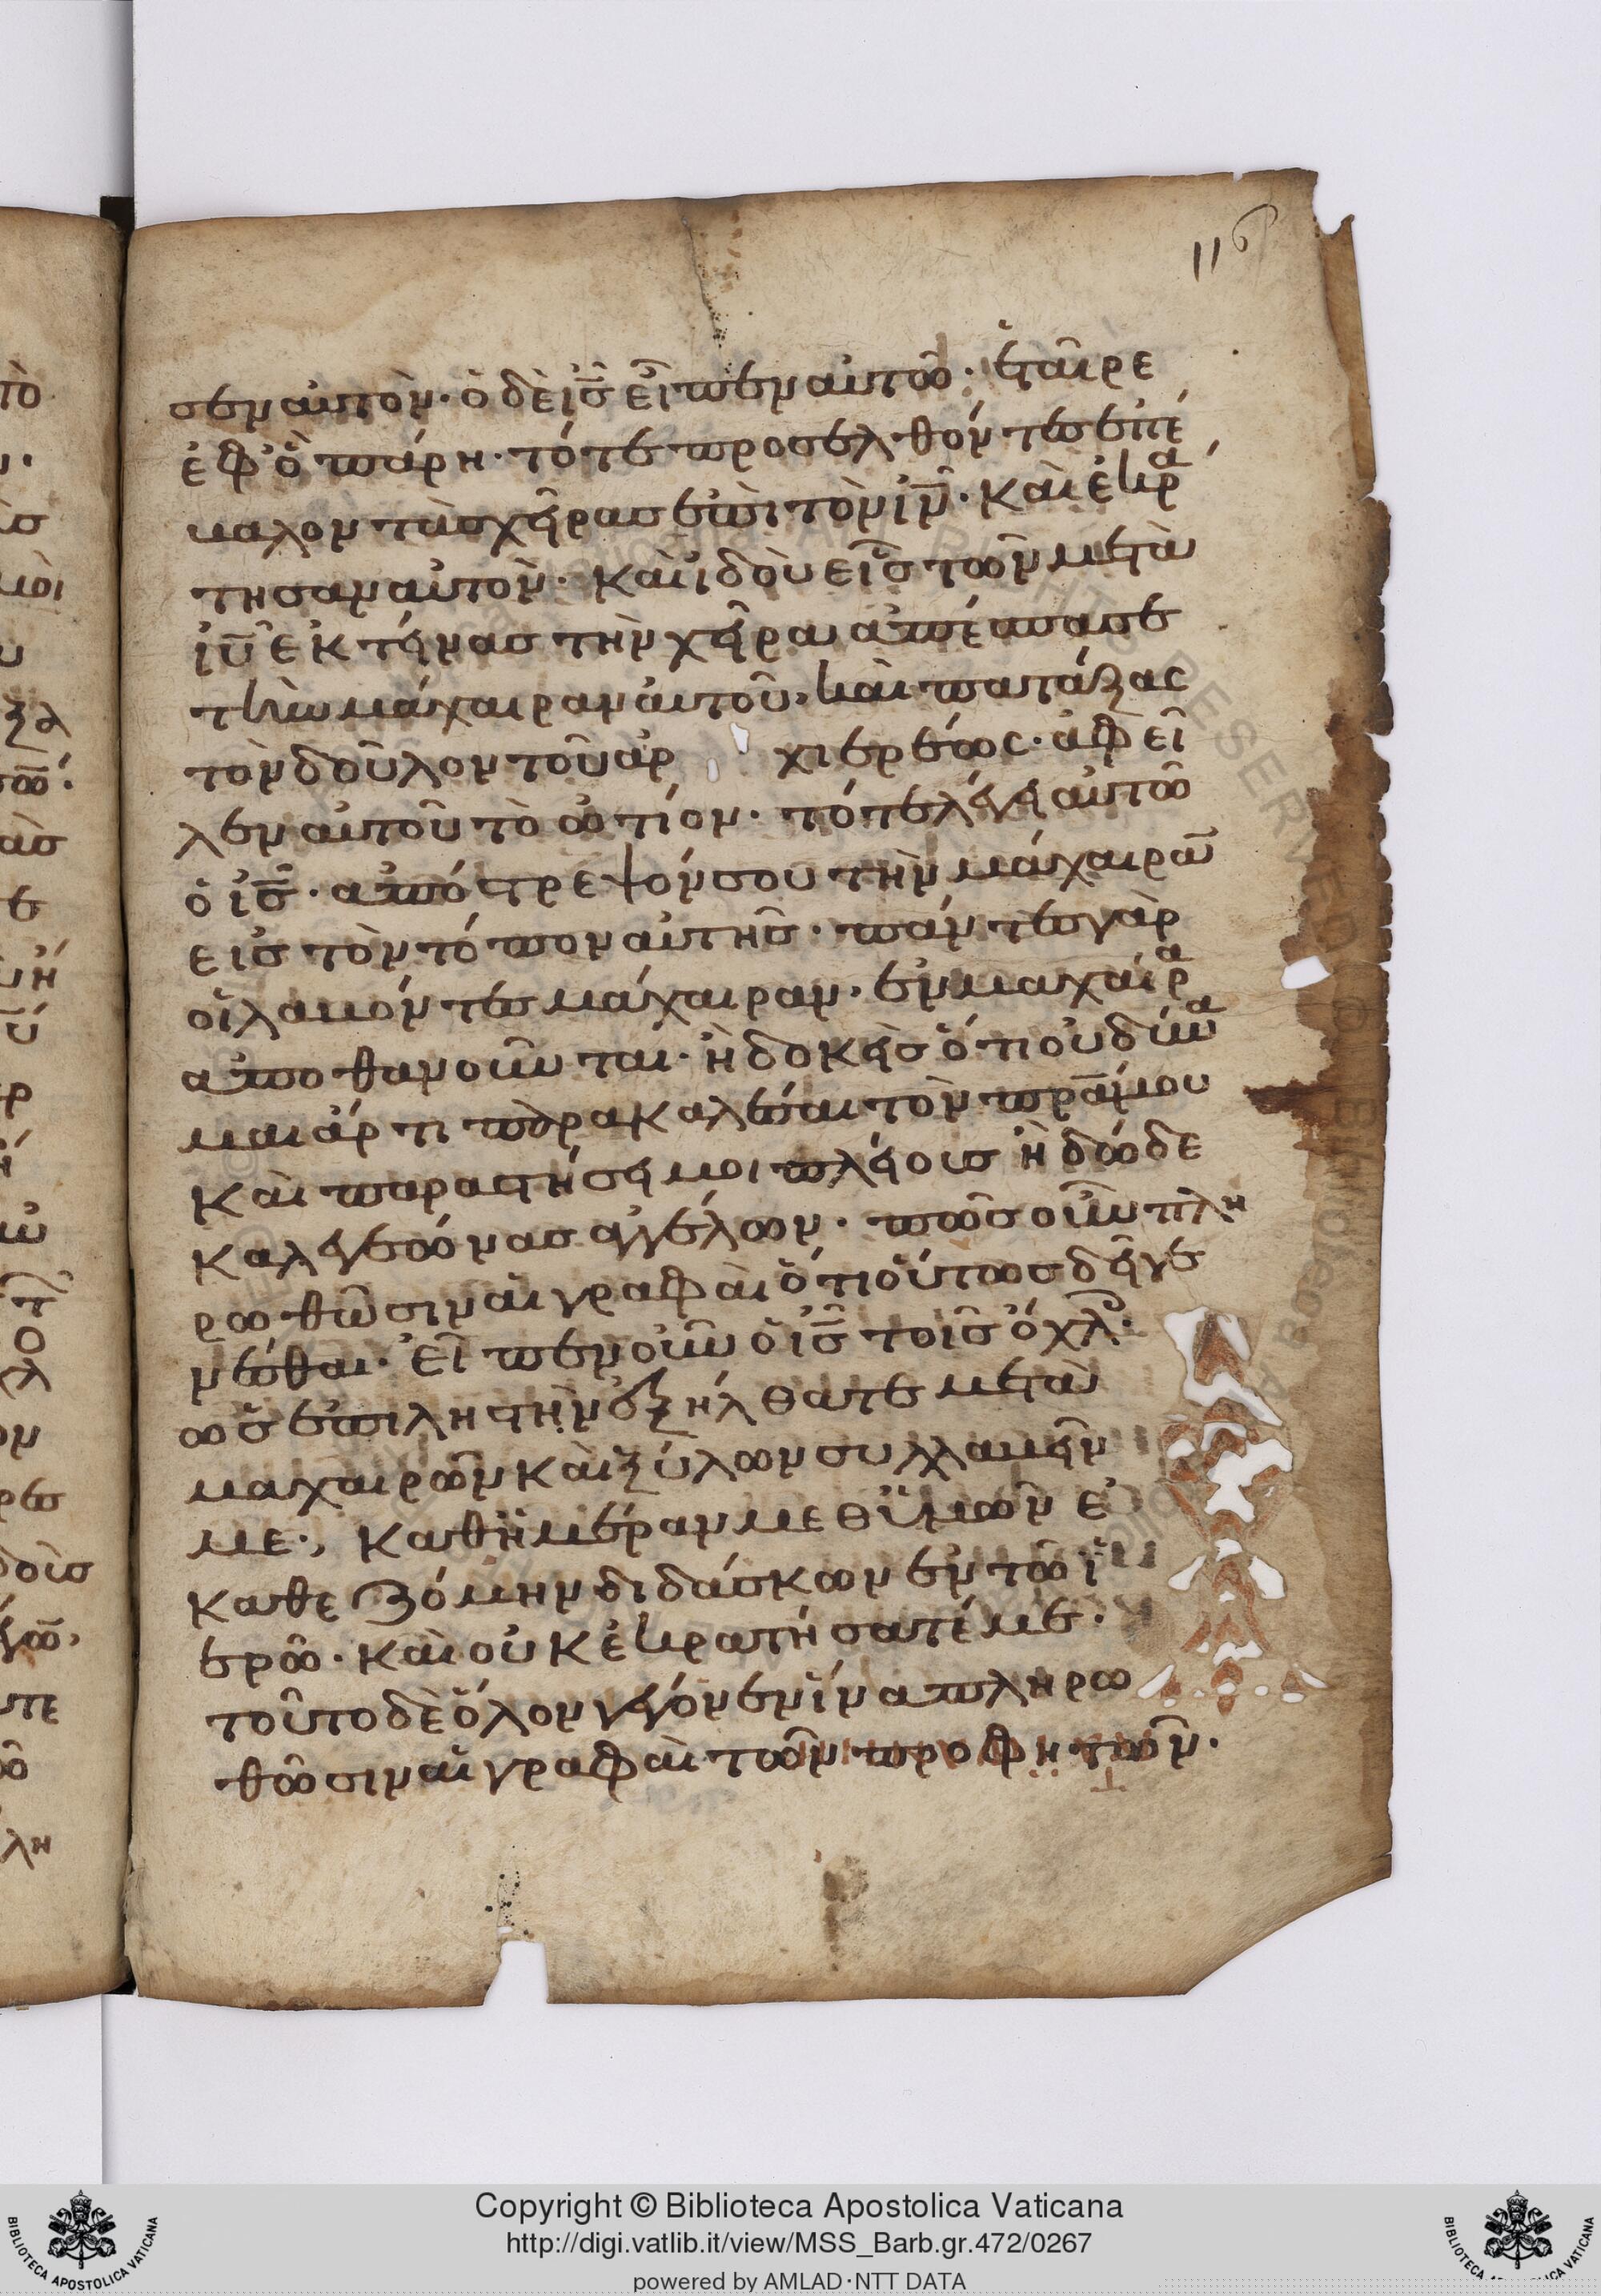 116
σεν αυτὸν· ὁ δὲ ις̅ εἶπεν αὐτῶ· ἑταῖρε
ἐφ' ὃ πάρη· τότε προσελθόντες ἐπέ
βαλον τὰς χεῖρας ἐπὶ τὸν ιν̅· καὶ ἐκρά
τησαν αὐτὸν· καὶ ἰδοὺ εἷς τῶν μετὰ
ιυ̅ ἐκτείνας τὴν χεῖρα ἀπέσπασε
τὴν μάχαιραν αὐτοῦ, καὶ πατάξας
τὸν δοῦλον τοῦ ἀρ χιερέως· ἀφεῖ
λεν αὐτοῦ τὸ ὠτίον· τότε λέγει αὐτῶ
ὁ ις̅· ἀπόστρεψόν σου τὴν μάχαιρα̅
εἰς τὸν τόπον αὐτῆς· πάντες γὰρ
οἱ λαβόντες μάχαιραν· ἐν μαχαίρα
ἀποθανοῦνται· ἢ δοκεῖς ὅτι οὐ δύνα
μαι ἄρτι παρακαλέσαι τὸν πρα̅ μου
καὶ παραστήσει μοι πλείους ἢ δώδε
κα λεγεώνας ἀγγέλων· πῶς οὖν πλη
ρωθῶσιν αἱ γραφαὶ ὅτι οὕτως δεῖ γε
νέσθαι· εἶπεν οὖν ὁ ις̅ τοῖς ὄχλ·
ὡς ἐπὶ ληστὴν ἐξήλθατε μετὰ
μαχαιρῶν καὶ ξύλων συλλαβεῖν
με·, καθ' ἡμέραν μεθ' ὑμῶν ἐ
καθεζόμην διδάσκων ἐν τῶ ἱ
ερῶ· καὶ οὐκ ἐκρατήσατέ με·
τοῦτο δὲ ὅλον γέγονεν ἵνα πληρω
θῶσιν αἱ γραφαὶ τῶν προφητῶν·
Copyright © Biblioteca Apostolica Vaticana
http://digi.vatlib.it/view/MSS_Barb.gr.472/0267
powered by AMLAD·NTT DATA
BIBLIOTECA APOSTOLICA VATICANA
BIBLIOTECA APOSTOLICA VATICANA